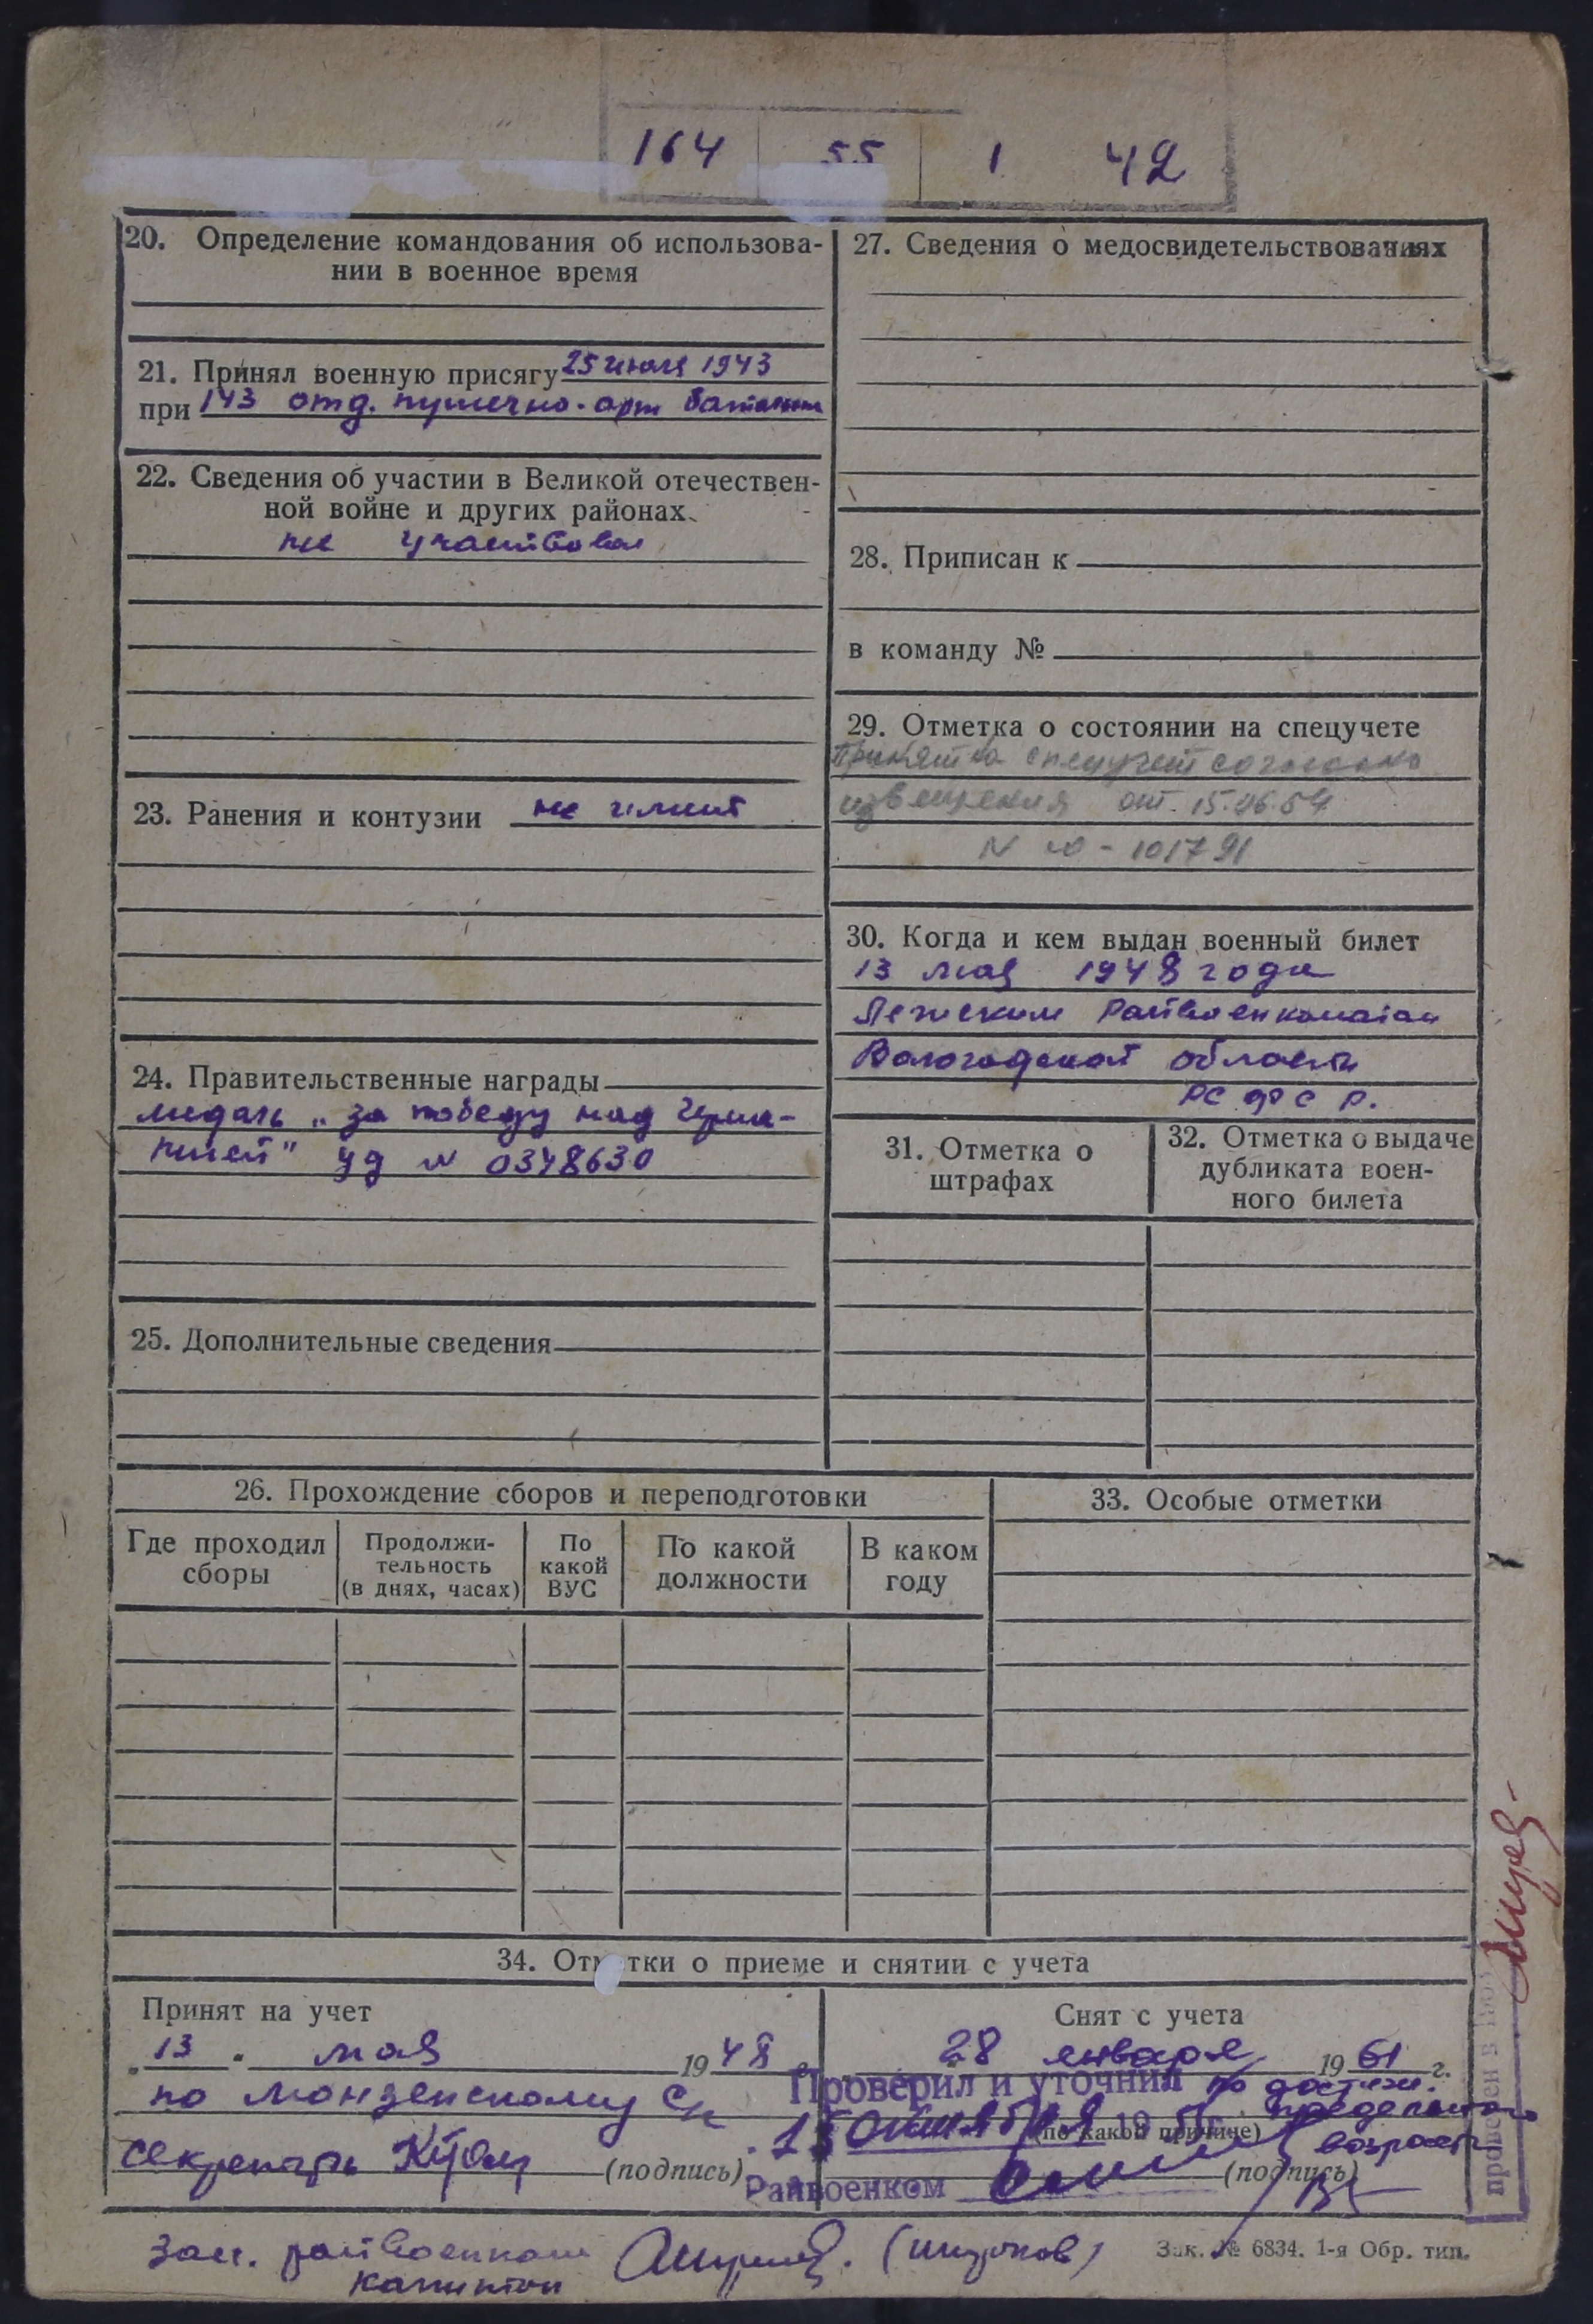 164 55 1 42
20. Определение командования об использова-
нии в военное время
21. Принял военную присягу 25 июля 1943
при 143 отд. пушечно-арт батальон
22. Сведения об участии в Великой отечествен-
ной войне и других районах
не участвовал
23. Ранения и контузии не имеет
24. Правительственные награды
медаль „за победу над Герма-
нией" уд N 0348630
25. Дополнительные сведения
27. Сведения о медосвидетельствованиях
28. Приписан к
в команду №
29. Отметка о состоянии на спецучете
Принят на спецучет согласно
извещения от 15.06.54
N 10-101791
30. Когда и кем выдан военный билет
13 мая 1948 года
Лежским Райвоенкоматом
Вологодской области
РСФСР.
31. Отметка о
штрафах
32. Отметка о выдаче
дубликата воен-
ного билета
26. Прохождение сборов и переподготовки
Где проходил
сборы
Продолжи-
тельность
(в днях, часах)
По
какой
ВУС
По какой
должности
В каком
году
33. Особые отметки
34. Отм тки о приеме и снятии с учета
Принят на учет
„13" мая 1948 г.
по Монзенскому с/с
секретарь
(подпись)
Снят с учета
28 января 1961 г.
по достиж.
предельного
возраста
(по какой причине)
(подпись)
Проверил и уточнил
15 октября 19
Райвоенком
проверен в
Зам. райвоенкома
капитан (Шкурков)
Зак. № 6834. 1-я Обр. тип.